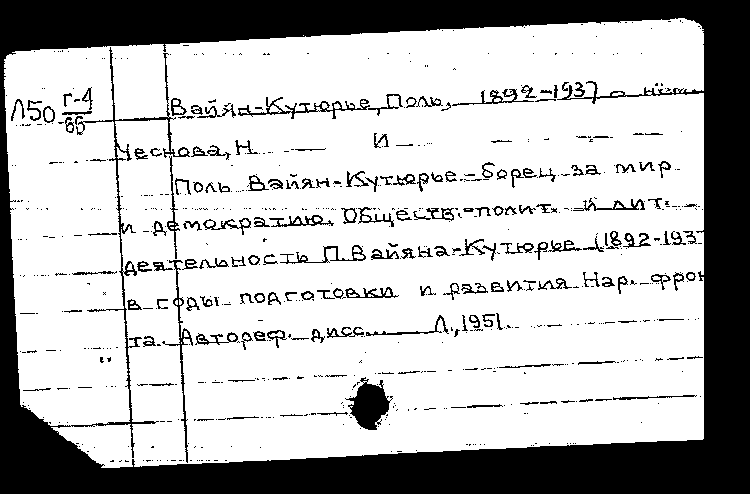 Л50 г-4
66
Вайян-Кутюрье, Поль, 1892-1937 о нём.
Чеснова, Н. И
Поль Вайян-Кутюрье - борец за мир
и демократию. Обществ.-полит. и лит.
деятельность П. Вайяна-Кутюрье (1892-1937
в годы подготовки и развития Нар. фрон
та. Автореф. дисс... Л., 1951.